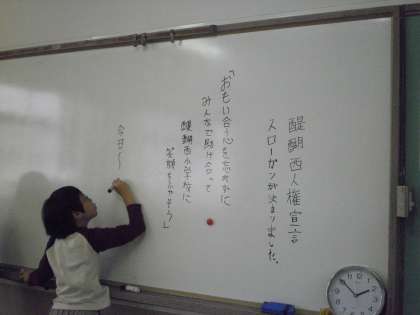 醍醐西人権宣言
スローガンが決まりました。
「おもい合う心を忘れずに
みんなで助け合って
醍醐西小学校に
笑顔をふやそう」